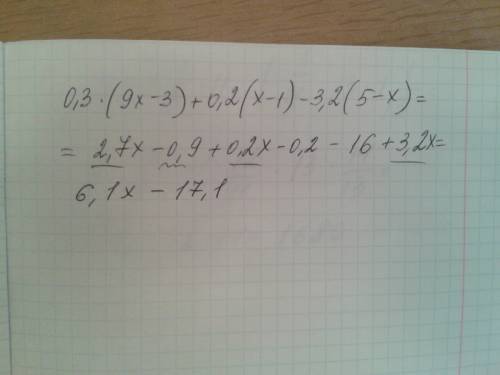 0,3·(9x-3)+0,2(x-1)-3,2(5-x)=
= 2,7x-0,9+0,2x-0,2-16+3,2x=
6,1x-17,1